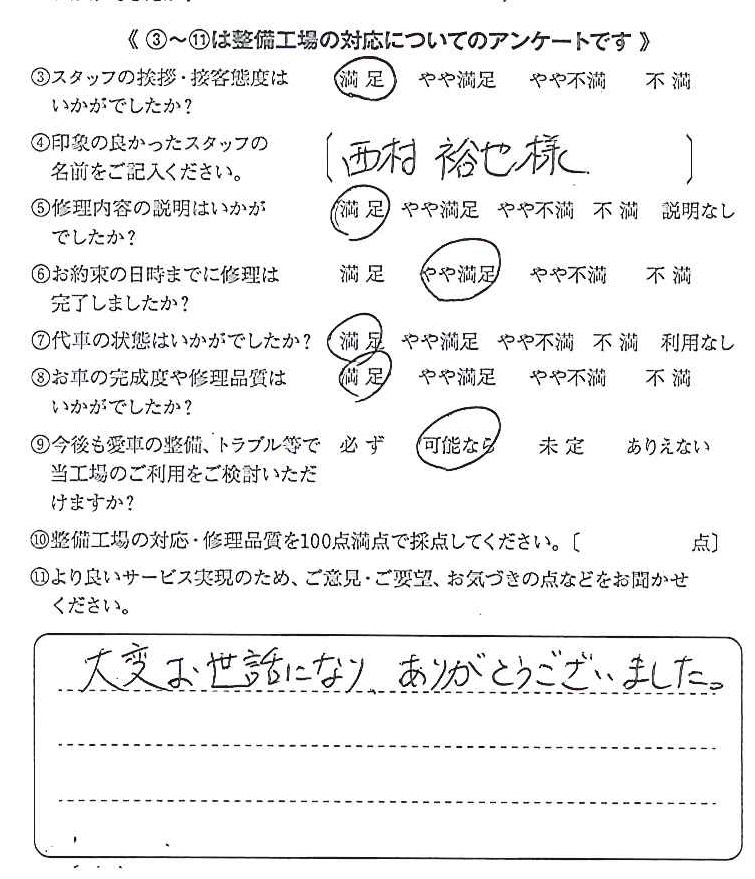 《 ③～⑪は整備工場の対応についてのアンケートです 》
③スタッフの挨拶・接客態度は 満 足 やや満足 やや不満 不 満
いかがでしたか？
④印象の良かったスタッフの
名前をご記入ください。 〔 西村 裕也様 〕
⑤修理内容の説明はいかが 満 足 やや満足 やや不満 不 満 説明なし
でしたか？
⑥お約束の日時までに修理は 満 足 やや満足 やや不満 不 満
完了しましたか？
⑦代車の状態はいかがでしたか？ 満 足 やや満足 やや不満 不 満 利用なし
⑧お車の完成度や修理品質は 満 足 やや満足 やや不満 不 満
いかがでしたか？
⑨今後も愛車の整備、トラブル等で 必 ず 可能なら 未 定 ありえない
当工場のご利用をご検討いただ
けますか？
⑩整備工場の対応・修理品質を100点満点で採点してください。〔 点〕
⑪より良いサービス実現のため、ご意見・ご要望、お気づきの点などをお聞かせ
ください。
大変お世話になり、ありがとうございました。